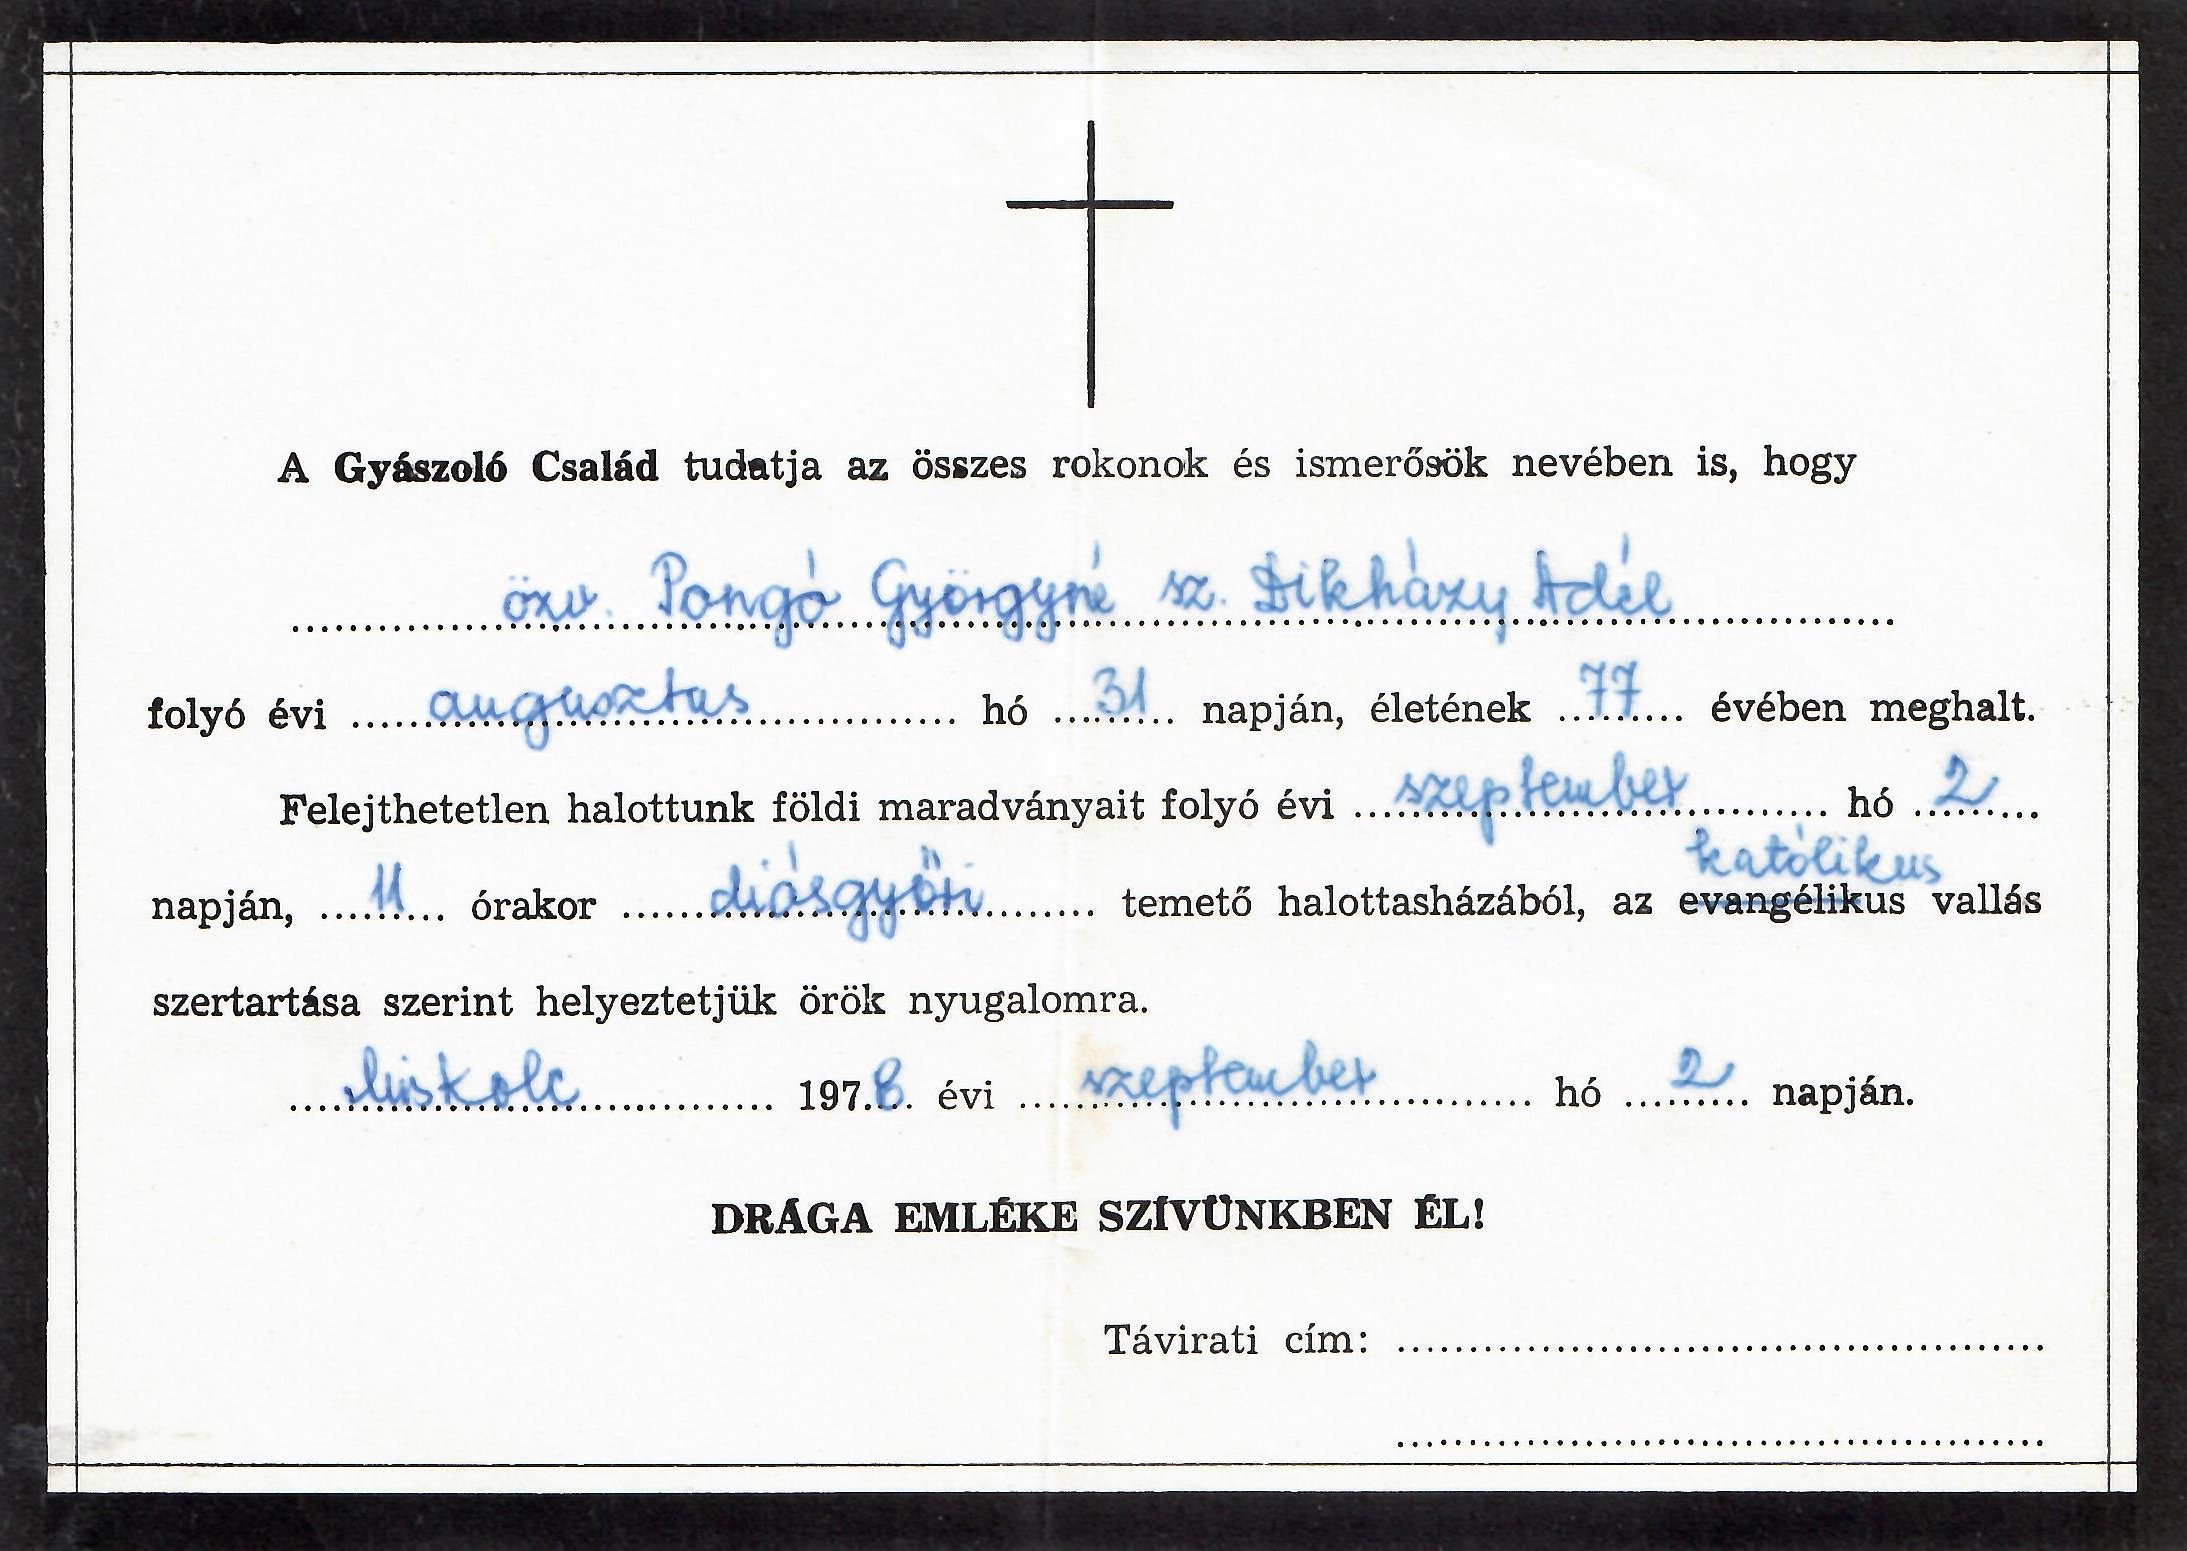 A Gyászoló Család tudatja az összes rokonok és ismerősök nevében is, hogy
özv. Pongó Györgyné sz. Dikházy Adél
folyó évi augusztus hó 31 napján, életének 77 évében meghalt.
Felejthetetlen halottunk földi maradványait folyó évi szeptember hó 2
katólikus
napján, 11 órakor diósgyőri temető halottasházából, az evangélikus vallás
szertartása szerint helyeztetjük örök nyugalomra.
Miskolc 1978 évi szeptember hó 2 napján.
DRÁGA EMLÉKE SZÍVÜNKBEN ÉL!
Távirati cím: